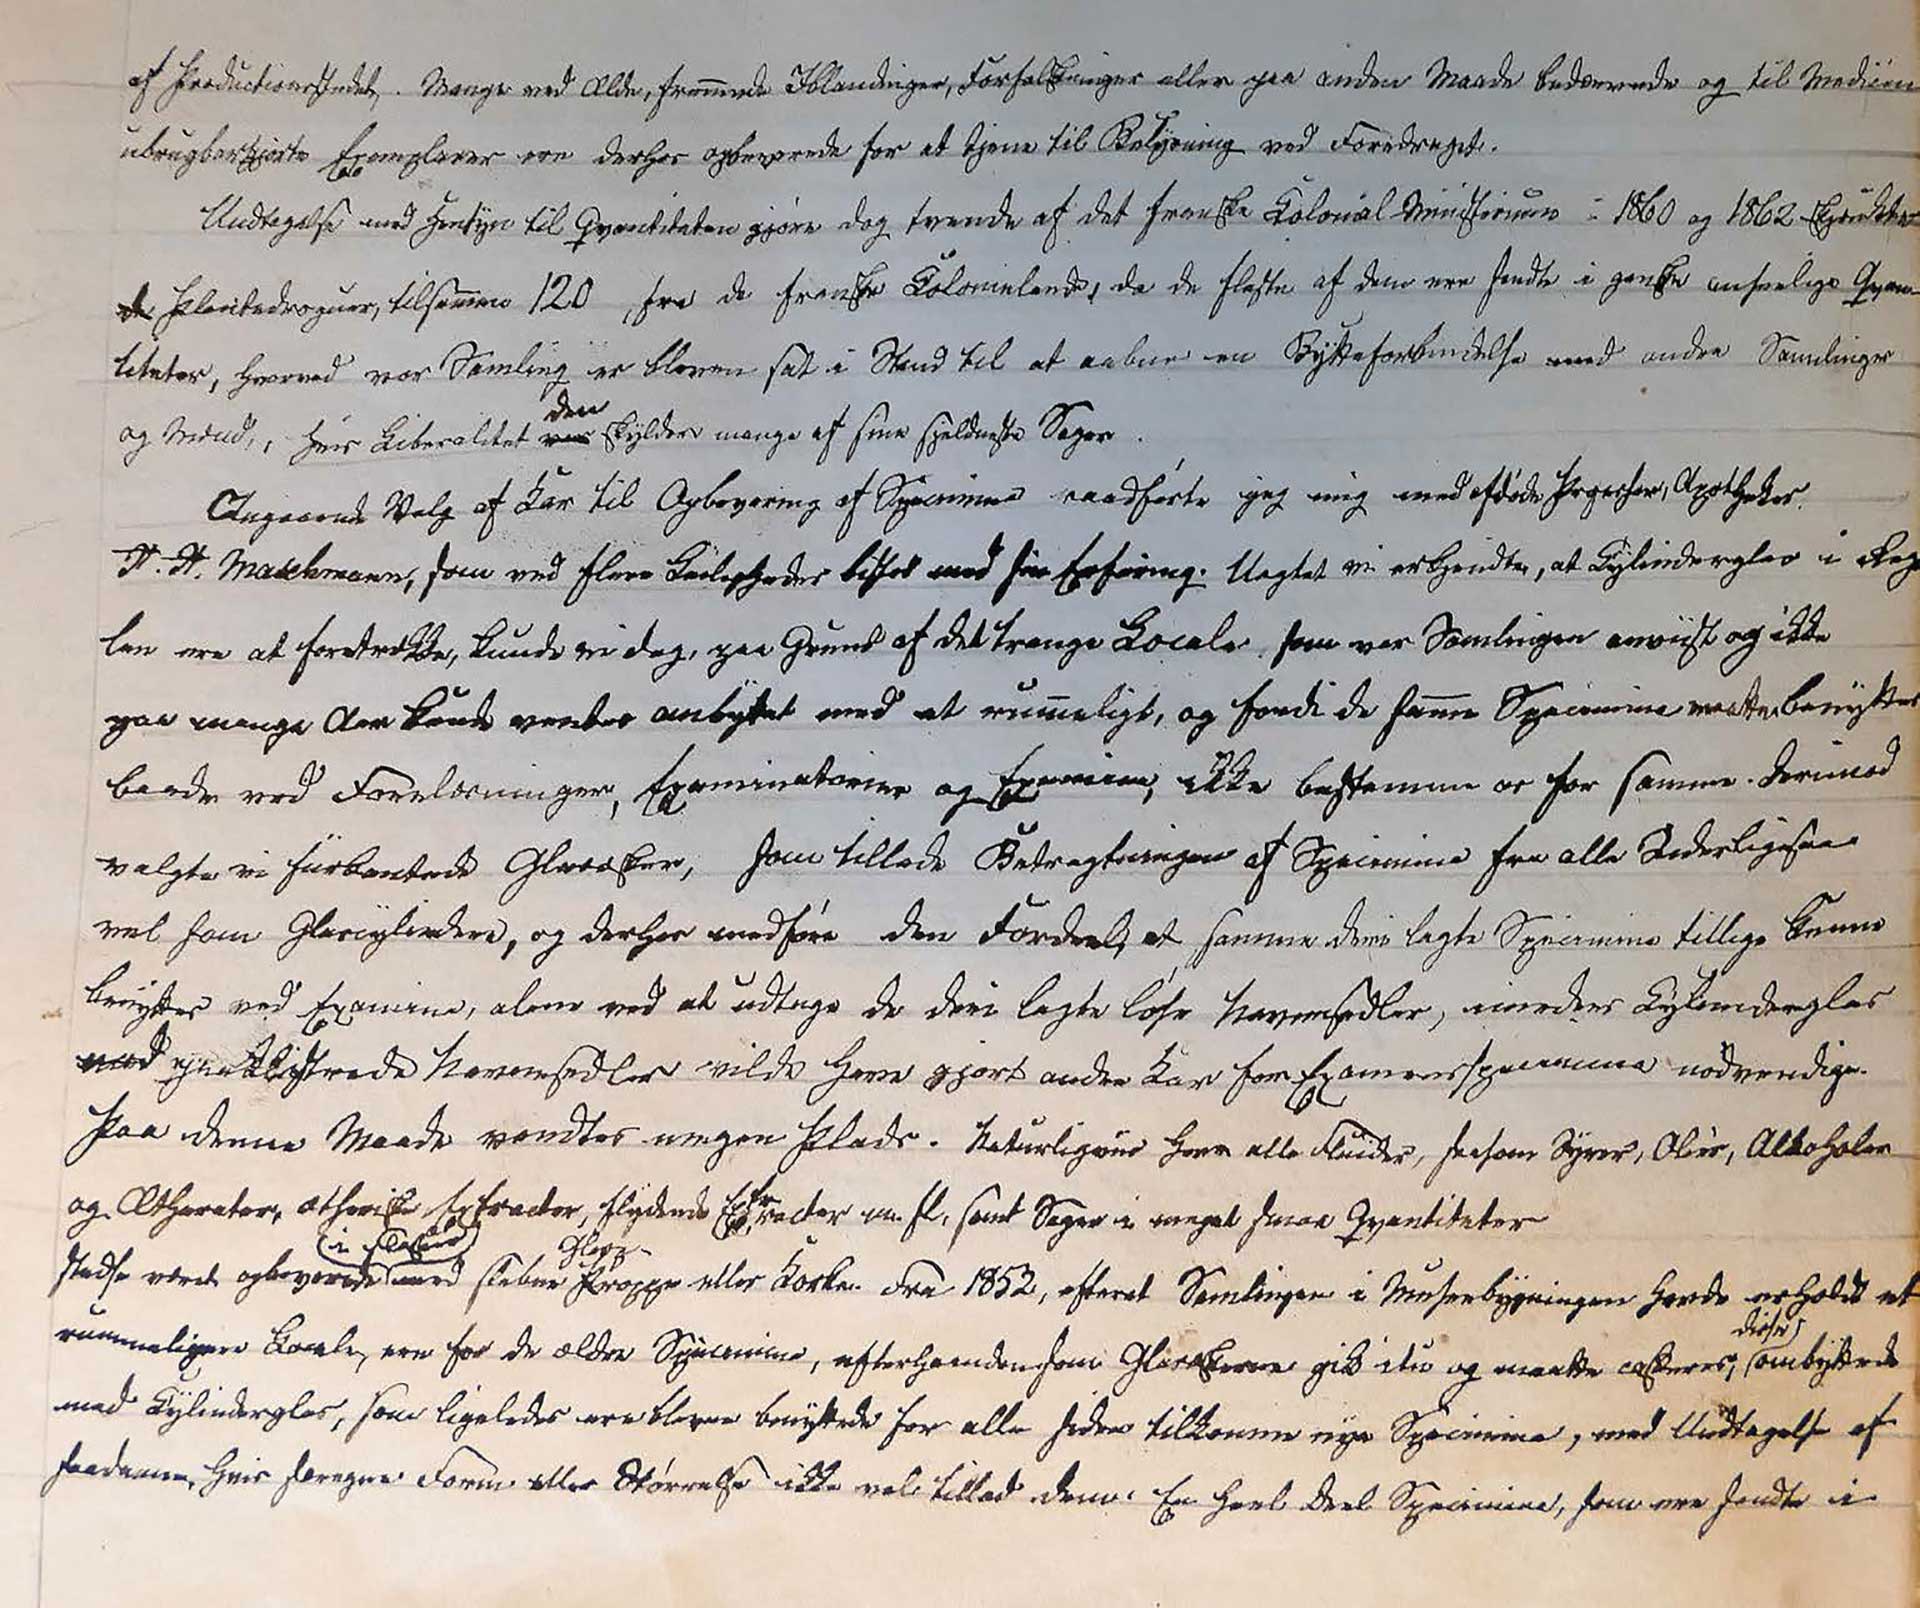 af Productionsstedet. Mange ved Ælde, fremmede Iblandinger, Forfalskninger eller paa anden Maade bedærvede og til Medicin
ubrugbargjorte Exemplarer ere derhos opbevarede for at tjene til Belysning ved Foredraget.
Undtagelse med Hensyn til Qvantiteten gjøre dog tvende af det franske Colonial-Ministerium i 1860 og 1862
Plantedroguer, tilsammen 120, fra de franske Colonielande, da de fleste af dem ere sendte i ganske anseelige Qvan-
titeter, hvorved vor Samling er bleven sat i Stand til at aabne en Bytteforbindelse med andre Samlinger
og Mænd, hvis Liberalitet den skylder mange af sine sjeldneste Sager.
Angaaende Valg af Kar til Opbevaring af Specimina raadførte jeg mig med afdøde Professor, Apotheker
H. H. Maschmann, som ved flere Leiligheder bistod med sin Erfaring. Uagtet vi erkjendte, at Cylinderglas i Reg-
len ere at foretrække, kunde vi dog, paa Grund af det trange Locale som var Samlingen anviist og ikke
paa mange Aar kunde ventes ombyttet med et rummeligt, og fordi de samme Specimina maatte benyttes
baade ved Forelæsninger, Examinatorier og Examina, ikke bestemme os for samme. Derimod
valgte vi fiirkantede Glasæsker, som tillade Betragtningen af Specimina fra alle Sider ligesaa
vel som Glascylindere, og derhos medføre den Fordeel, at samme deri lagte Specimina tillige kunne
benyttes ved Examina, alene ved at udtage de deri lagte løse Navnesedler, imedens Cylinderglas
med paaklistrede Navnesedler vilde have gjort andre Kar for Examensspecimina nødvendige.
Paa denne Maade vandtes megen Plads. Naturligviis have alle Fluider, saasom Syrer, Olier, Alkoholer
og Ætherater, ætheriske Extracter, flydende Extracter m. fl., samt Sager i meget smaa Qvantiteter
stedse været opbevarede (i Flasker) med slebne Glas- Proppe eller Korke. Fra 1852, efterat Samlingen i Museebygningen havde erholdt et
rummeligere Locale, ere for de ældre Specimina, efterhaanden som Glasæskerne gik itu og maatte casseres, disse ombyttede
med Cylinderglas, som ligeledes ere blevne benyttede for alle siden tilkomne nye Specimina, med Undtagelse af
saadanne, hvis særegne Form eller Størrelse ikke vel tillod dem. En heel Deel Specimina, som ere sendte i